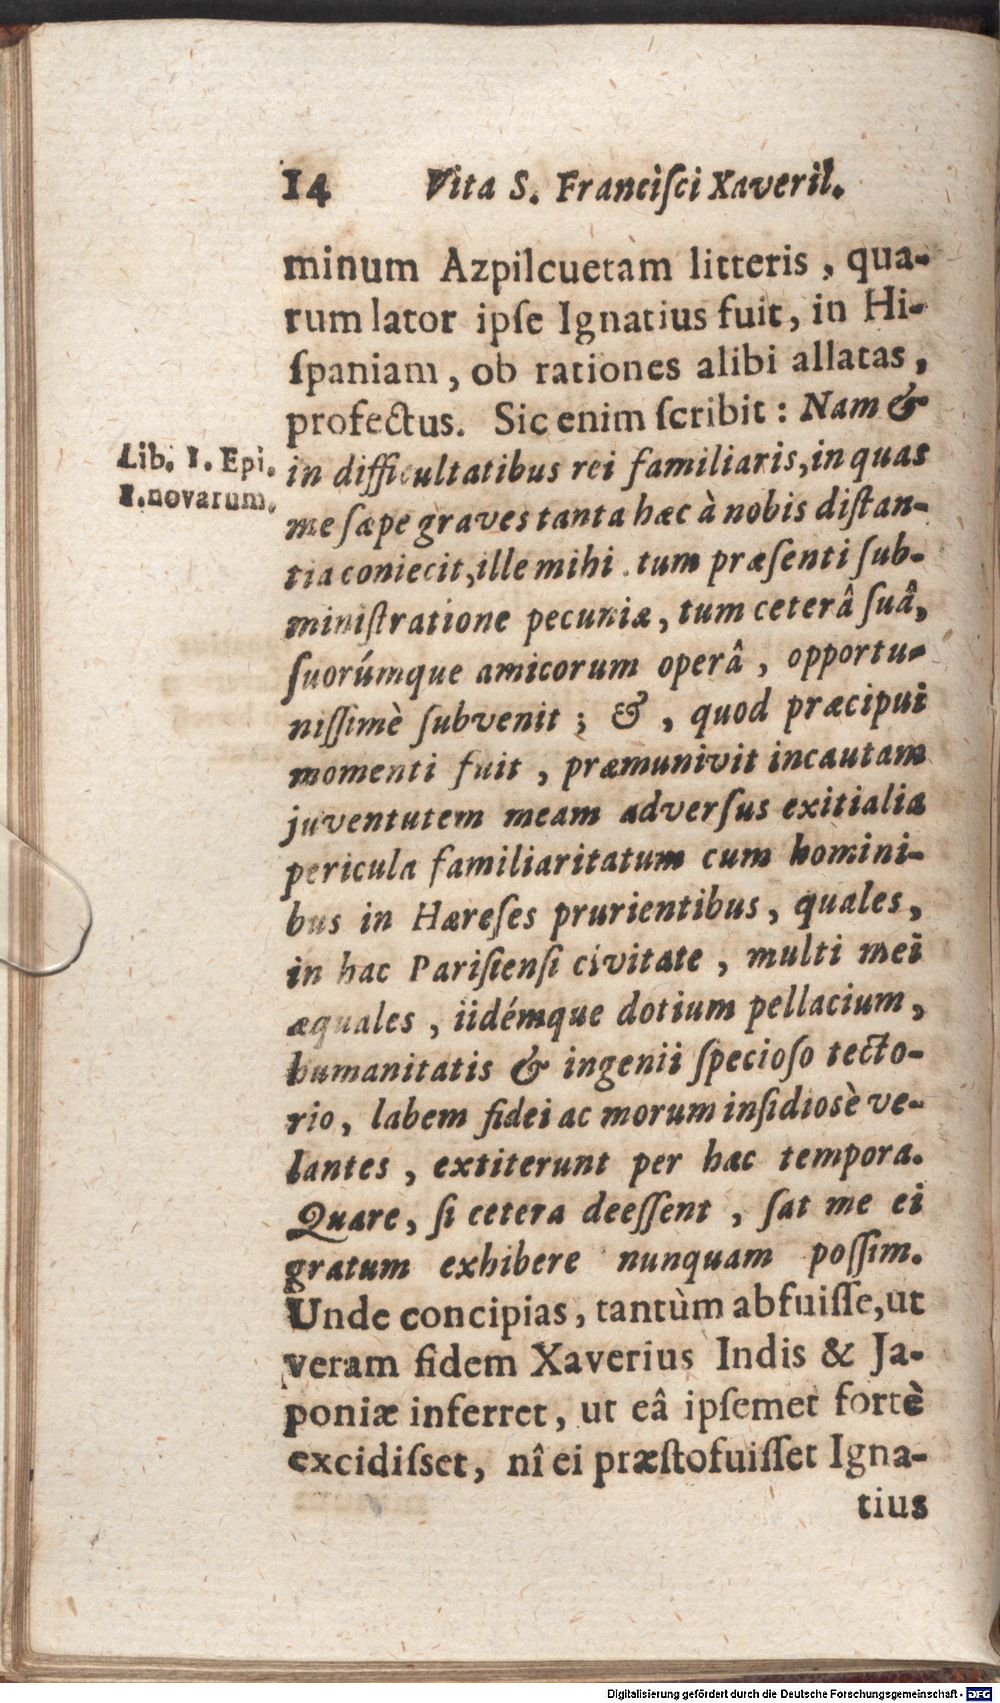 14 Vita S. Franciſci Xaverii.
minum Azpilcuetam litteris, qua-
rum lator ipſe Ignatius fuit, in Hi-
ſpaniam, ob rationes alibi allatas,
profectus. Sic enim ſcribit: Nam &
Lib. 1. Epi.
1. novarum.
in difficultatibus rei familiaris, in quas
me ſæpe graves tanta hæc à nobis diſtan-
tia coniecit, ille mihi tum præſenti ſub-
miniſtratione pecuniæ, tum ceterâ ſuâ,
ſuorúmque amicorum operâ, opportu-
niſſimè ſubvenit; &, quod præcipui
momenti fuit, præmunivit incautam
juventutem meam adverſus exitialia
pericula familiaritatum cum homini-
bus in Hæreſes prurientibus, quales,
in hac Pariſienſi civitate, multi mei
æquales, iidémque dotium pellacium,
humanitatis & ingenii ſpecioſo tecto-
rio, labem fidei ac morum inſidiosè ve-
lantes, extiterunt per hæc tempora.
Quare, ſi cetera deeſſent, ſat me ei
gratum exhibere nunquam poſſim.
Unde concipias, tantùm abfuiſſe, ut
veram fidem Xaverius Indis & Ja-
poniæ inferret, ut eâ ipſemet fortè
excidiſset, nî ei præſtofuiſſet Igna-
tius
Digitalisierung gefördert durch die Deutsche Forschungsgemeinschaft - DFG